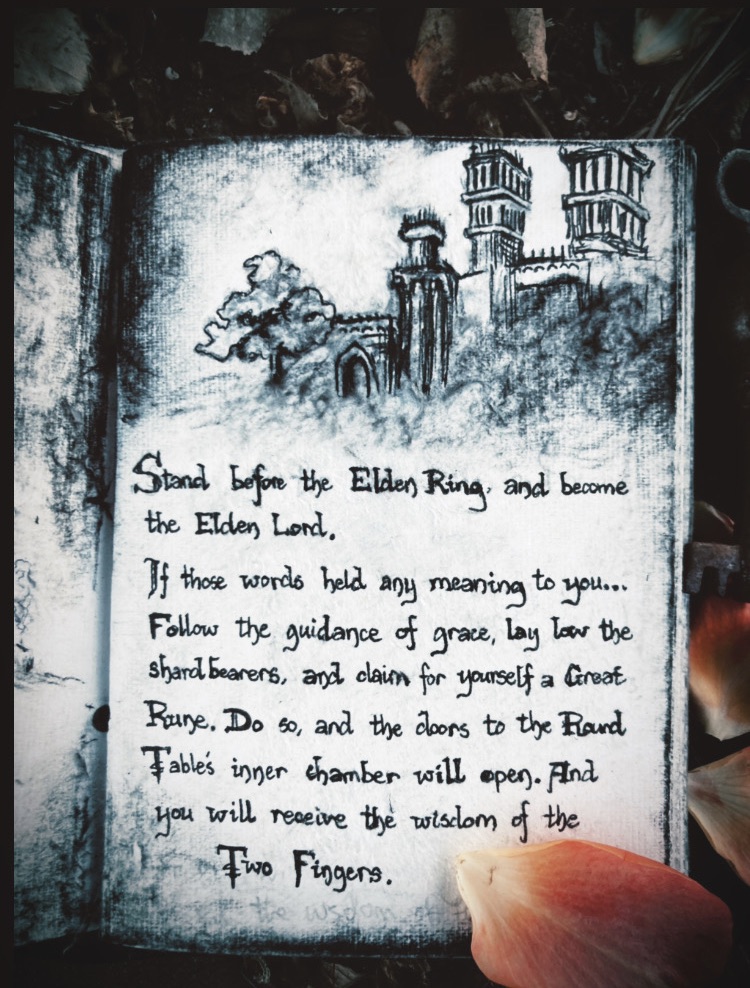 Stand before the Elden Ring, and become
the Elden Lord.
If those words held any meaning to you...
Follow the guidance of grace, lay low the
shardbearers, and claim for yourself a Great
Rune. Do so, and the doors to the Round
Table's inner chamber will open. And
you will receive the wisdom of the
Two Fingers.
the wisdom